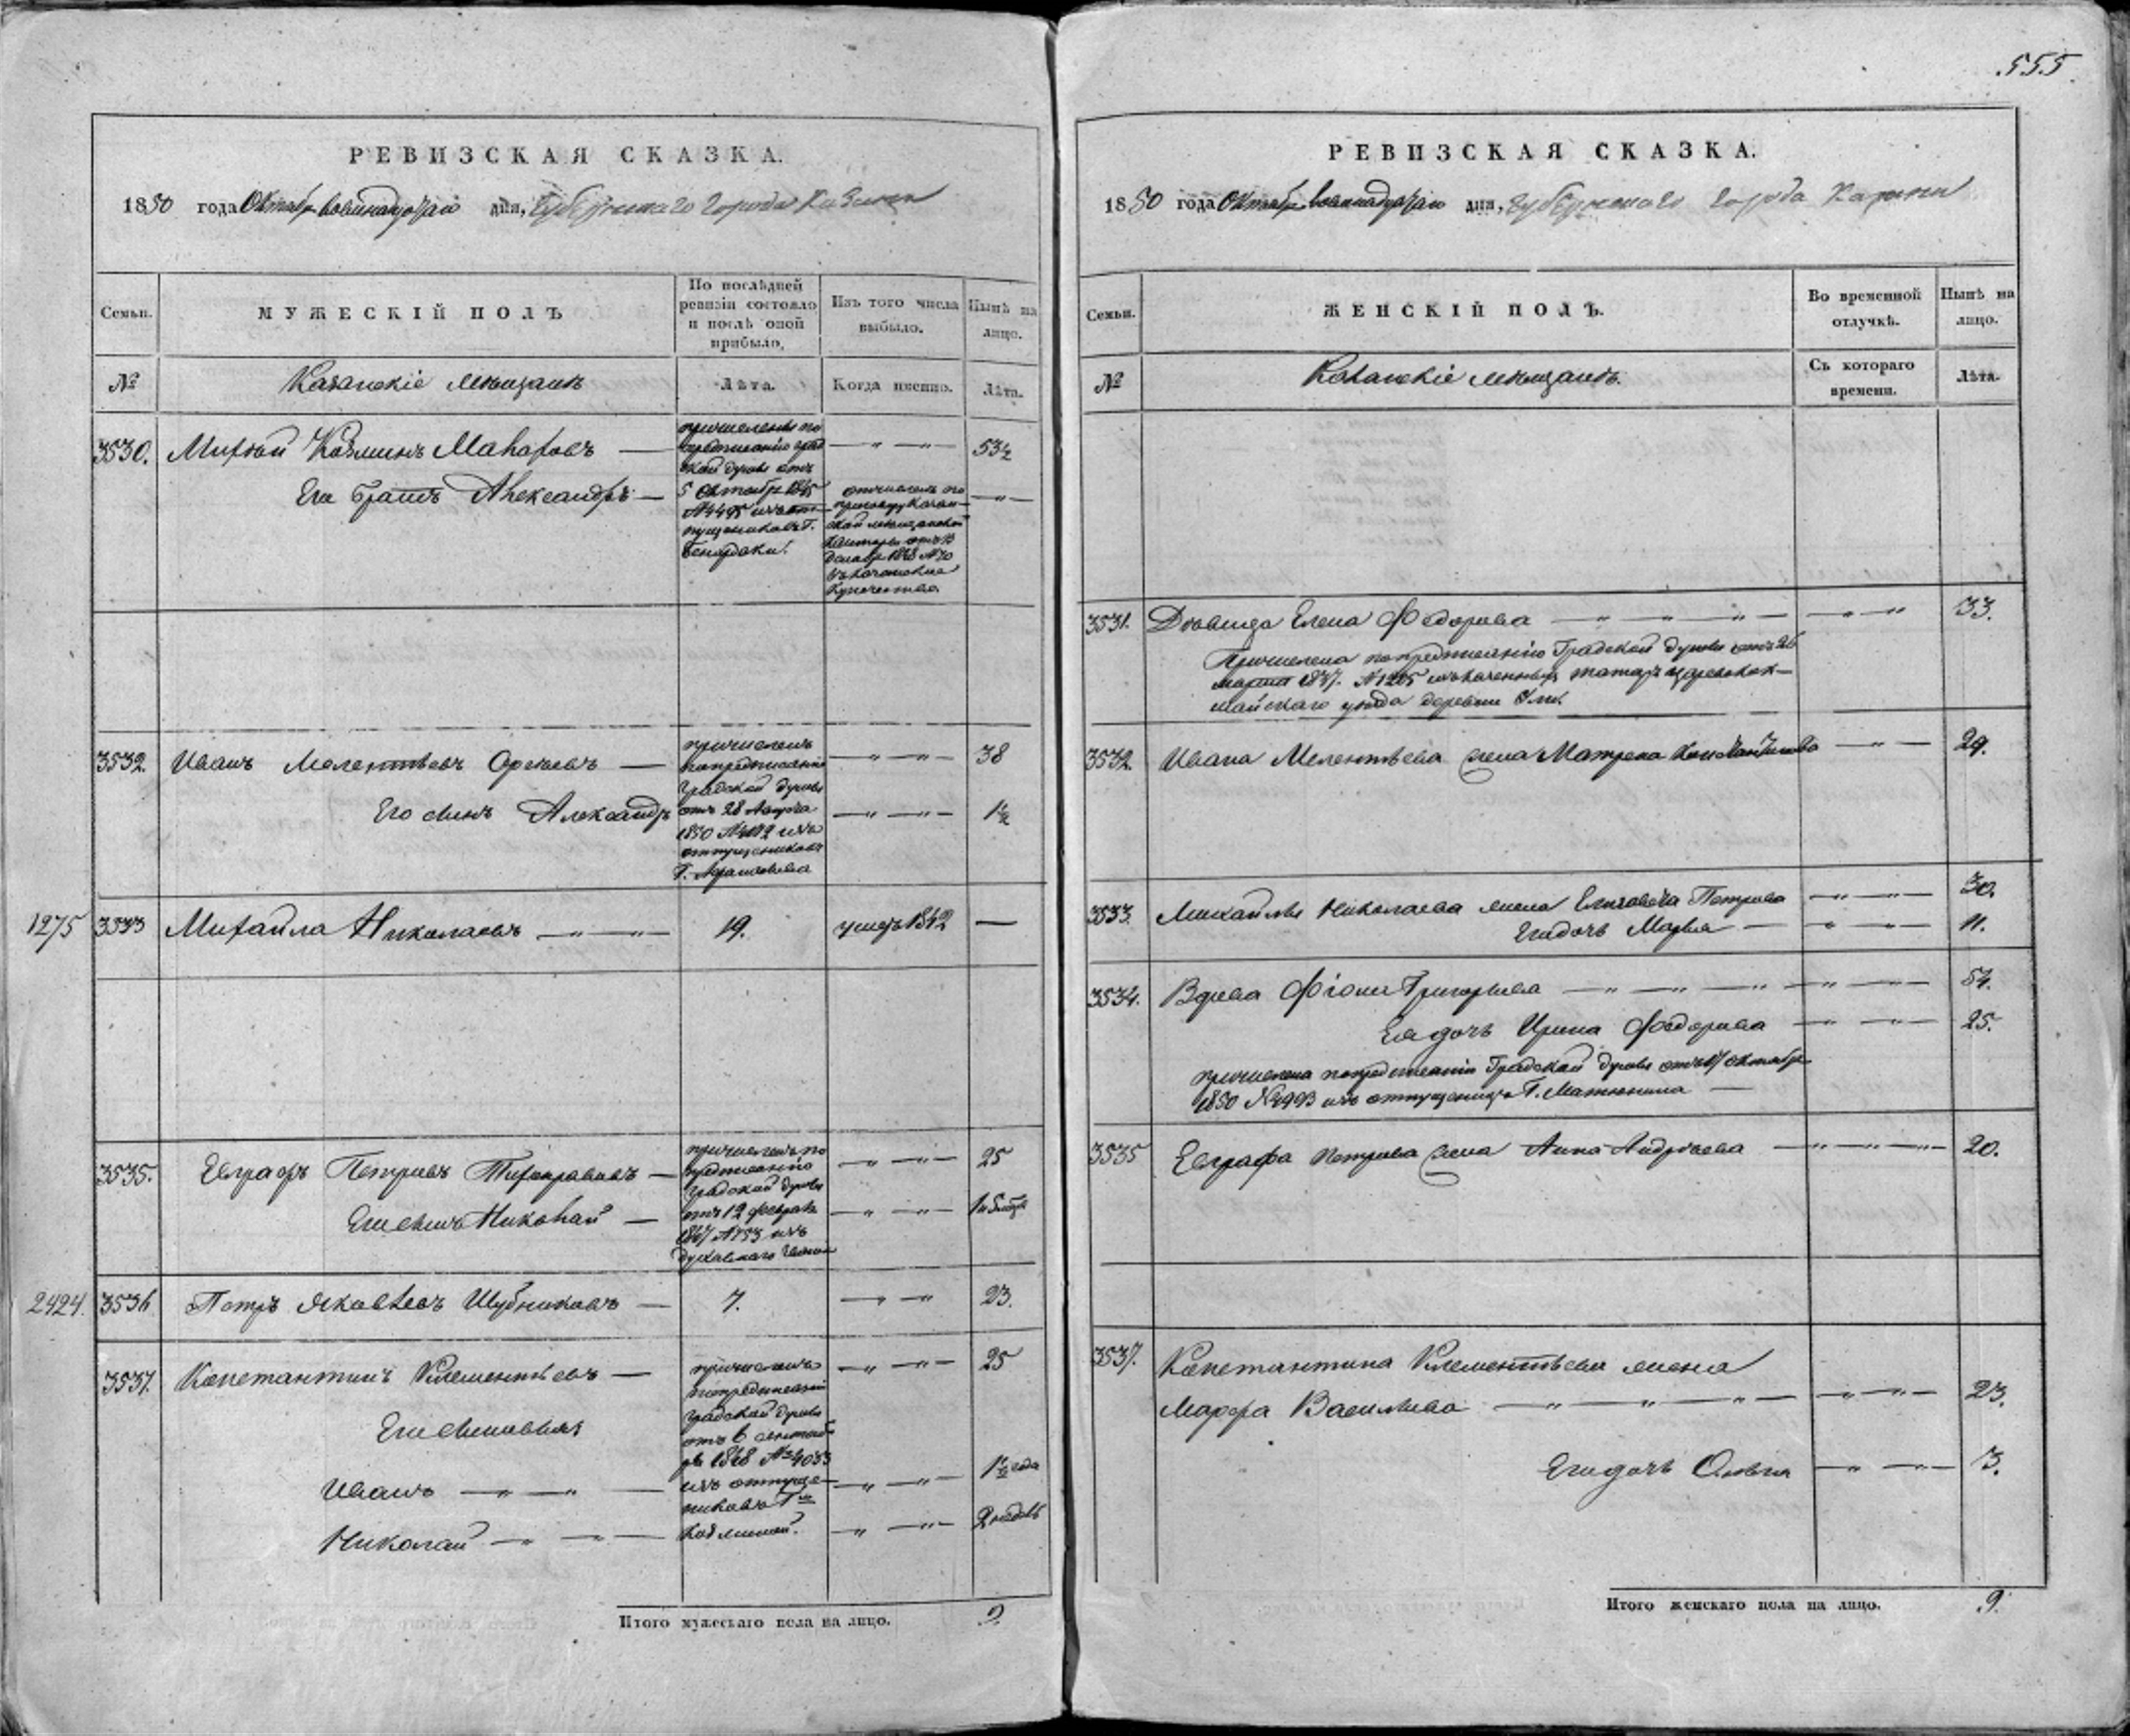 555.
РЕВИЗСКАЯ СКАЗКА.
1850 года Октября восемнадцатаго дня, Губернскаго города Казани
Семьи.
МУЖЕСКІЙ ПОЛЪ
По послѣдней
ревизіи состояло
и послѣ оной
прибыло.
Изъ того числа
выбыло.
Нынѣ на
лицо.
№
Казанскіе мѣщане
Лѣта.
Когда именно.
Лѣта.
3530.
Михай Козминъ Макаровъ
причисленъ по
предписанію град
ской думы отъ
5 Октября 1845
№ 4495 изъ от
пущениковъ Г.
Бенардаки.
53½
Его братъ Александръ
отчисленъ по
приговору Казан
ской мѣщанской
въ Казанское
Купечество
3532.
Иванъ Мелентьевъ
причисленъ
по предписанію
Градской думы
отъ 28 Августа
1850 изъ
отпущениковъ
38
Его сынъ Александръ
1½
1275
3533
Михайла Николаевъ
19.
умеръ 1842
3535.
Евграфъ Петровъ
причисленъ по
предписанію
Градской думы
отъ 12 февраля
1847 № 753 изъ
духовнаго званія
25
Его сынъ Николай
2424.
3536
Петръ Яковлевъ Шубниковъ
7.
23.
3537.
Константинъ Клементьевъ
причисленъ
по предписанію
Градской думы
отъ 6 сентяб
ря 1848 № 4033
изъ отпуще
никовъ Г-жи
Козминой.
25
Его сыновья
Иванъ
1½ года
Николай
2 недѣль
Итого мужескаго пола на лицо.
9.
РЕВИЗСКАЯ СКАЗКА.
1850 года Октября восемнадцатаго дня, Губернскаго города Казани
Семьи.
ЖЕНСКІЙ ПОЛЪ.
Во временной
отлучкѣ.
Нынѣ на
лицо.
№
Казанскіе мѣщане.
Съ котораго
времени.
Лѣта.
3531.
Дѣвица Елена Федорова
33.
Причислена по предписанію Градской думы отъ 26
марта 1847. № 1205 изъ казенныхъ татаръ царевокок-
шайскаго уѣзда деревни
3532.
Ивана Мелентьева жена Матрена
29.
3533.
Михайлы Николаева жена Елизавета Петрова
30.
Его дочь Марья
11.
3534.
Вдова Фіона Григорьева
54.
Ея дочь Ирина Федорова
25.
причислена по предписанію Градской думы отъ 17 октября
1850 № 4993 изъ отпущеницъ Г. Матюнина
3535
Евграфа Петрова жена Анна Андреева
20.
3537.
Константина Клементьева жена
Марфа Васильева
23.
Его дочь Ольга
3.
Итого женскаго пола на лицо.
9.